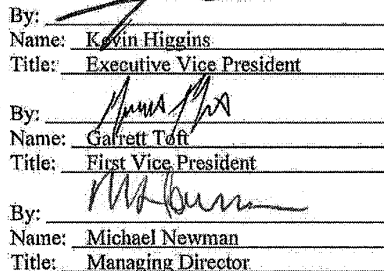 By:
Name: Kevin Higgins
Title: Executive Vice President
By:
Name: Garrett Toft
Title: First Vice President
By:
Name: Michael Newman
Title: Managing Director